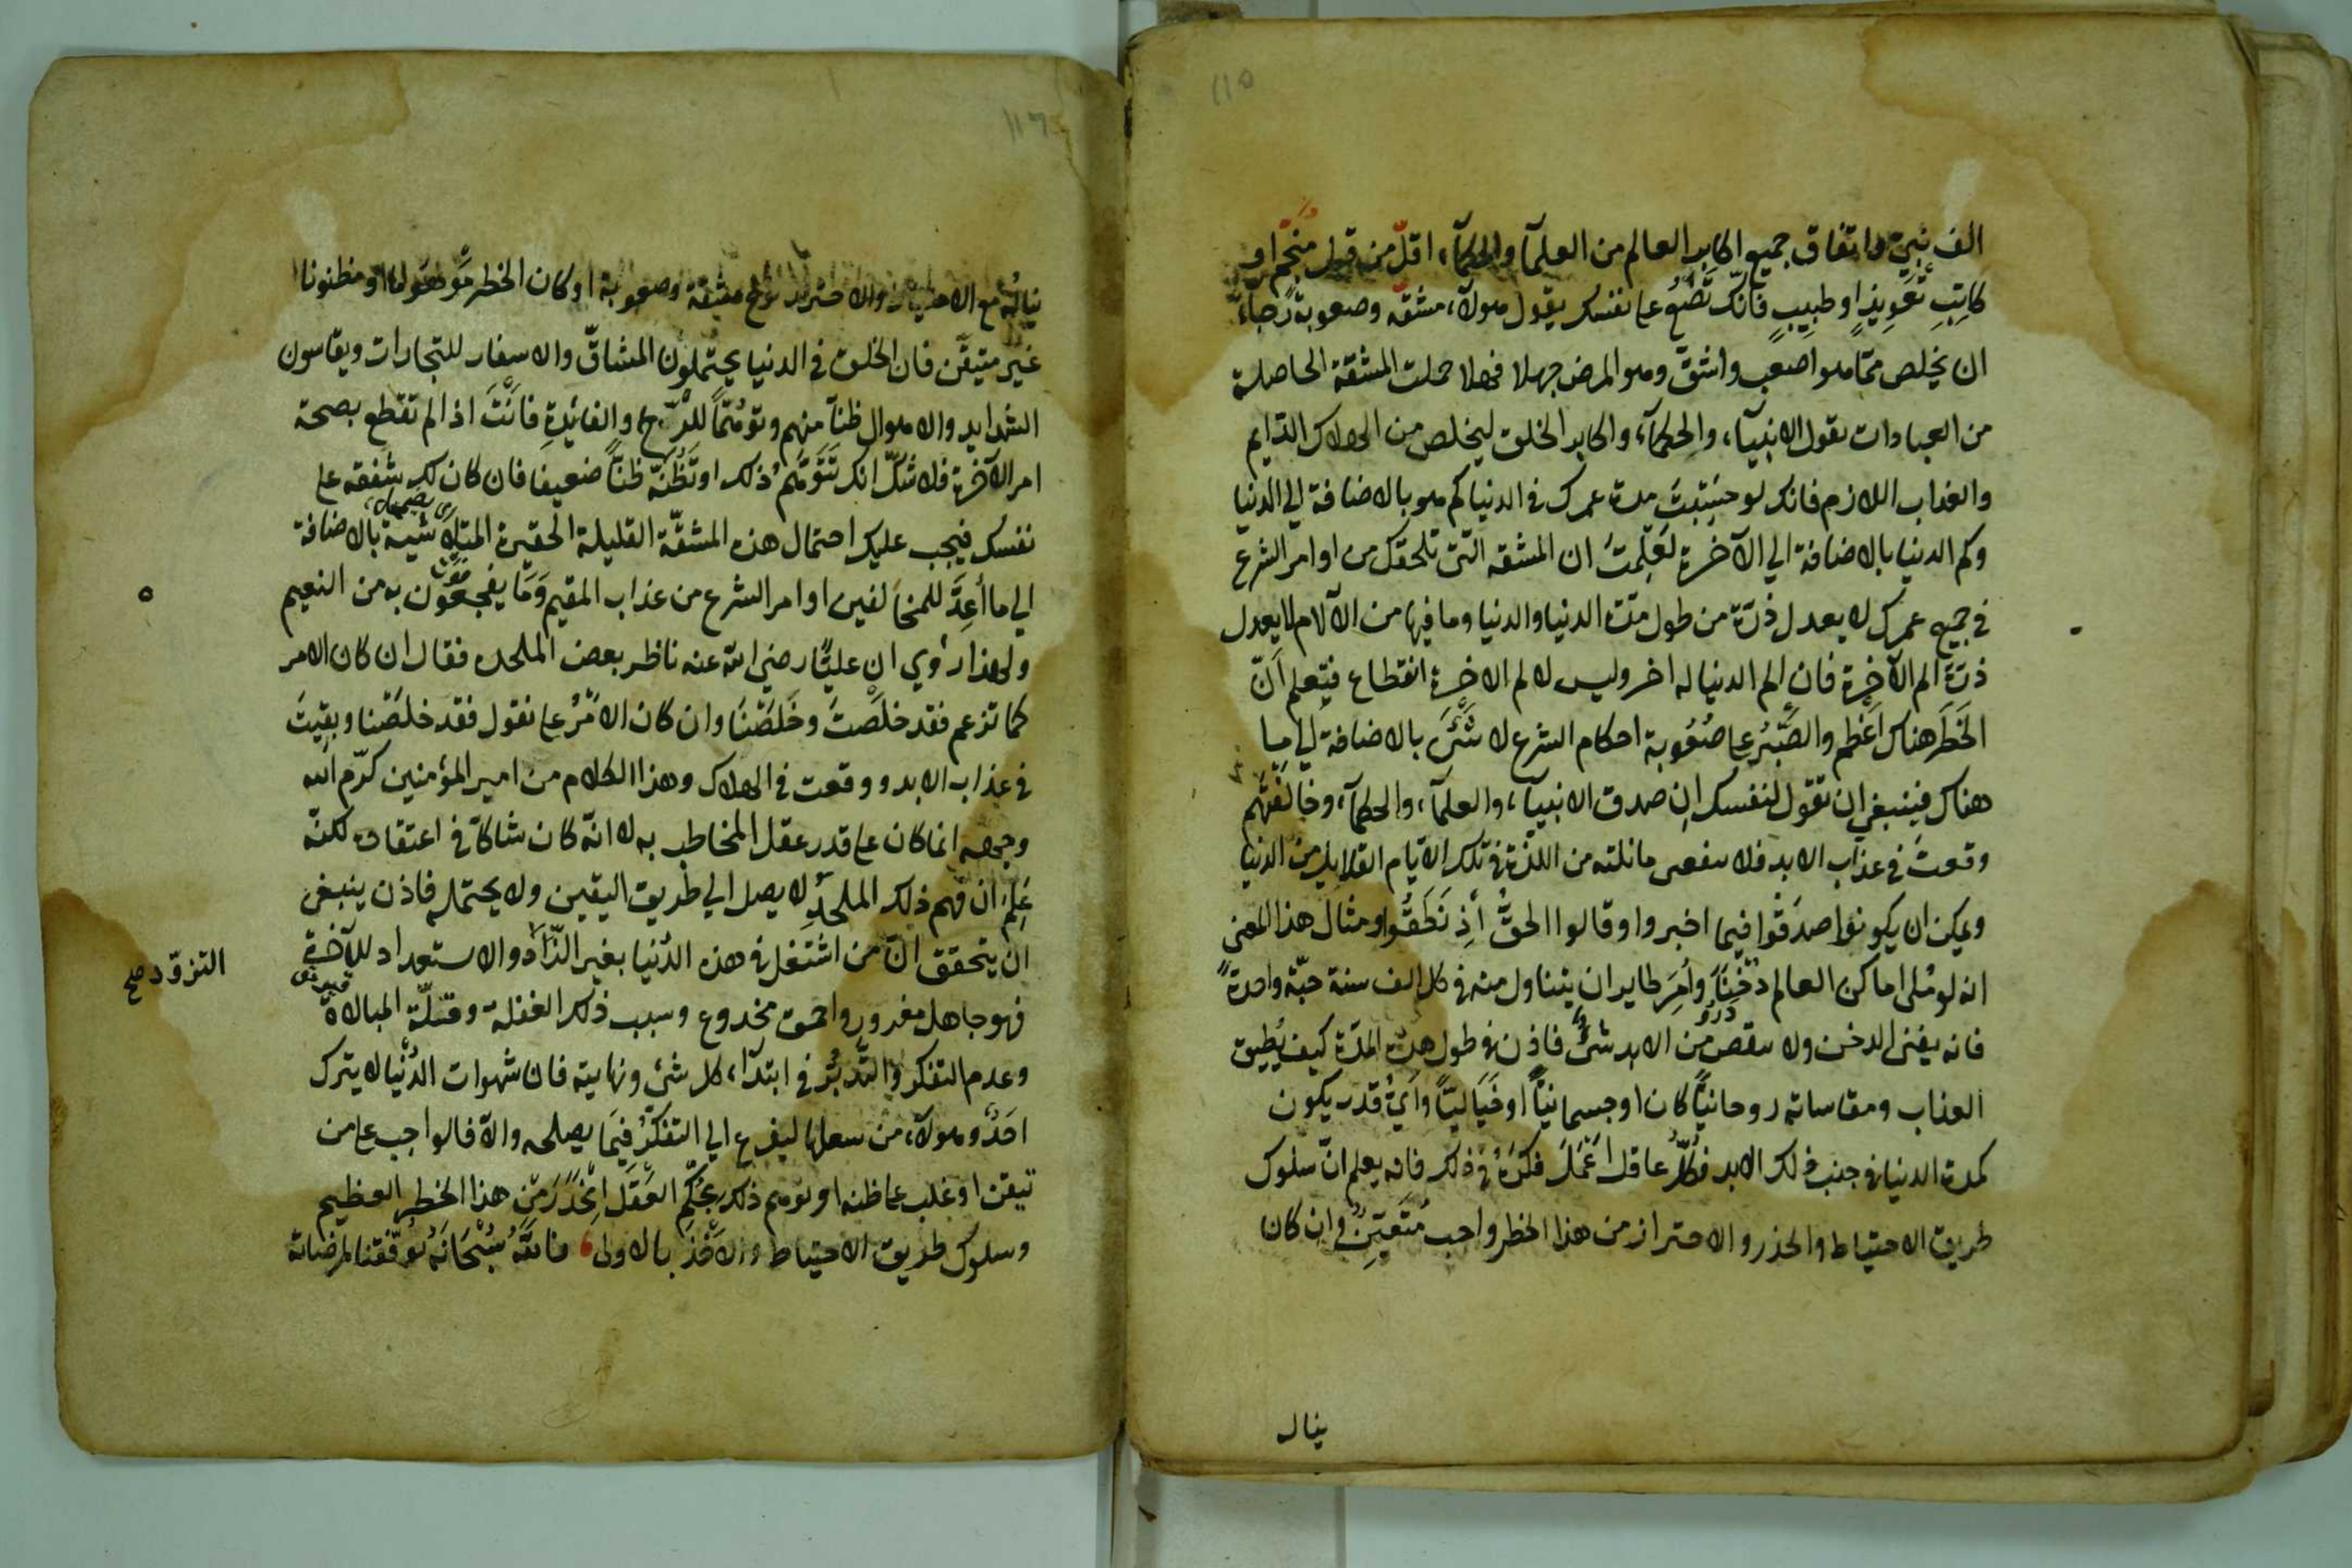 ١١٥
الف نبيّ واتفاق جميع اكابر العالم من العلمآء والحكمآء، اقلّ من قول منجّم او
كاتب تعويذ او طبيب فانّك تضع على نفسك بقول هولآء، مشقّه وصعوبة رجاء
ان يخلص ممّا هو اصعب واشقّ وهو المرض جهلا فهلا حملت المشقّة الحاصلة
من العبادات بقول الانبيآء، والحكمآء، واكابر الخلق ليخلص من الهلاك الدّايم
والعذاب اللازم فانك لو حسبت مدة عمرك في الدنيا كم هو بالاضافة الي الدنيا
وكم الدنيا بالاضافة الي الآخرة لعلمت ان المشقه التى تلحقك من اوامر الشرع
في جميع عمرك لا يعدل ذرّة من طول مدّت الدنيا والدنيا وما فيها من الآلام لا يعدل
ذرّة الم الآخرة فان الم الدنيا له اخر وليس لالم الاخرة انقطاع فيتعلم انّ
الخطر هناك اعظم والصّبر على صعوبة احكام الشرع لا شَئَ بالاضافة الي ما
هناك فينبغي ان تقول لنفسك ان صدق الانبيآء، والعلمآء، والحكمآء، وخالفتهم
وقعت في عذاب الابد فلا ينفعنى ما نلته من اللذّة في تلك الايّام القلايل من الدنيا
ويمكن ان يكونوا صدقوا فيما اخبروا وقالوا الحقّ أذ نطقوا ومثال هذا المعنى
انه لو مُلى اماكن العالم دُخنًا وأمر طاير ان يتناول منه في كل الف سنة حبّة واحدةً
فانه يفنى الدخن ولا ينقص من الابد شئ فاذن في طول هذه المدّة كيف يُطيق
العذاب ومقاساته روحانيًّا كان او جسمانيًّا او خياليًّا واي قدر يكون
كمدة الدنيا في جنب ذلك الابد فكلّ عاقل اعمل فكره في ذلك فانه يعلم انّ سلوك
طريق الاحتياط والحذر والاحتراز من هذا الخطر واجب متعيّن وان كان
ينال
١١٦
يناله مع الاحتياط والاحتراز نوع مشقّة وصعوبة او كان الخطر موهوما او مظنونا
غير متيقّن فان الخلق في الدنيا يحتملون المشاقّ والاسفار للتجارات ويقاسون
الشدايد والاهوال ظنآ منهم وتوهّمآ للرّبح والفائدة فانت اذا لم تقطع بصحة
امر الآخرة فلا شكّ انك تتوهّم ذلك او تظنّه ظنّا ضعيفا فان كان لك شفقه على
نفسك فيجب عليك احتمال هذه المشقّة القليلة الحقيرة المتلاشية بالاضافة
الي ما أعدّ للمخالفين اوامر الشرع من عذاب المقيم وما يفجعون به من النعيم
ولهذا رُوي ان عليًّا رضي الله عنه ناظر بعض الملحده فقال ان كان الامر
كما تزعم فقد خلصت وخلصنا وان كان الامر على نقول فقد خلصنا وبقيت
في عذاب الابد ووقعت في الهلاك وهذا الكلام من امير المؤمنين كرّم الله
وجهه انما كان على قدر عقل المخاطب به لا انّه كان شاكآ في اعتقاده لكنّه
علم ان فهم ذلك الملحد لا يصل الي طريق اليقين ولا يحتمله فاذن ينبغي
ان يتحقق انّ من اشتغل في هذه الدّنيا بغير الزّاد والاستعداد للآخرة
التزوّد صح
فهو جاهل مغرور واحمق مخدوع وسبب ذلك الغفلة وقلّة المبالاة
وعدم التفكر والتّدبّر في ابتدآء، كل شئ ونهايته فان شهوات الدّنيا لا يترك
احدًا وهولآء، من سعلها ليفرع الي التفكّر فيما يصلحه والاّ فالواجب على من
تيقن او غلب على ظنه او توهم ذلك بحكم العقل التحذّر من هذا الخطر العظيم
وسلوك طريق الاحتياط والاخذ بالاولى فالله سبحانه يوفّقنا لمرضاته